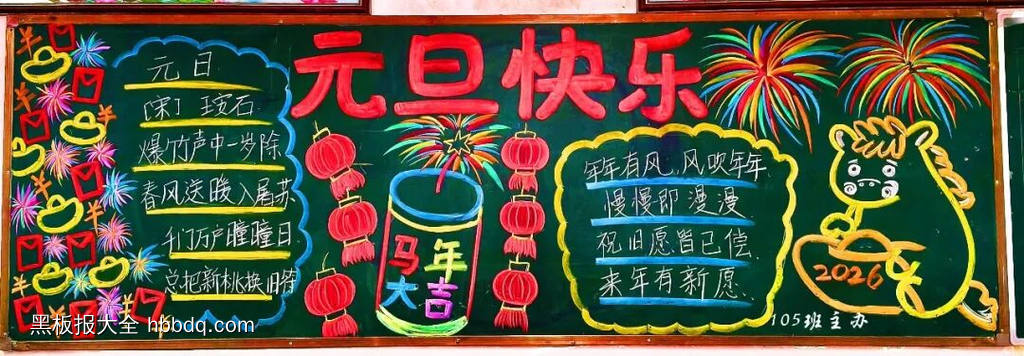 元旦快乐
元日
[宋] 王安石
爆竹声中一岁除
春风送暖入屠苏
千门万户瞳瞳日
总把新桃换旧符
马年
大吉
年年有风,风吹年年
慢慢即漫漫
祝旧愿皆已偿
来年有新愿
2026
105班主办
黑板报大全 hbbdq.com